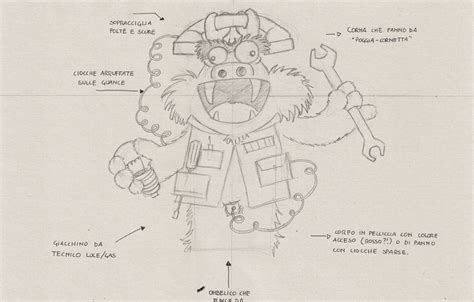 SOPRACCIGLIA
FOLTE E SCURE
CORNA CHE FANNO DA
"POGGIA-CORNETTA"
CIOCCHE ARRUFFATE
SULLE GUANCE
GIACCHINO DA
TECNICO LUCE/GAS
CORPO IN PELLICCIA CON COLORE
ACCESO (ROSSO?!) O DI PANNO
CON CIOCCHE SPARSE.
OMBELICO CHE
FUNGE DA